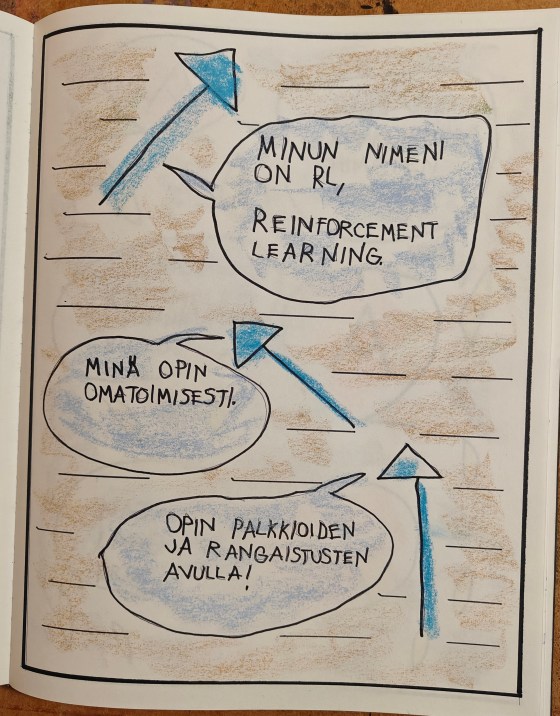 MINUN NIMENI
ON RL,
REINFORCEMENT
LEARNING.
MINÄ OPIN
OMATOIMISESTI.
OPIN PALKKIOIDEN
JA RANGAISTUSTEN
AVULLA!